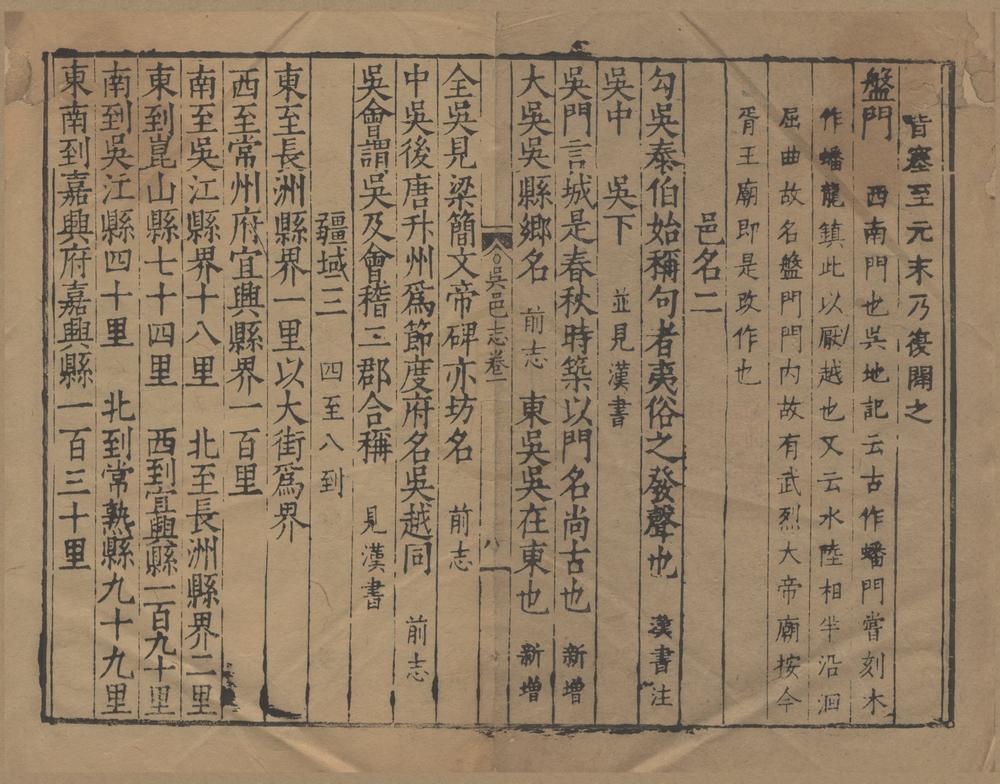 皆塞至元末乃復開之
盤門　西南門也吳地記云古作蟠門嘗刻木
作蟠龍鎮此以厭越也又云水陸相半沿洄
屈曲故名盤門門内故有武烈大帝廟按今
胥王廟即是改作也
邑名二
勾吳泰伯始稱句者夷俗之發聲也　漢書注
吳中　吳下　並見漢書
吳門言城是春秋時築以門名尚古也　新增
大吳吳縣鄉名　前志　東吳吳在東也　新增
吳邑志卷一　八
全吳見梁簡文帝碑亦坊名　前志
中吳後唐升州爲節度府名吳越同　前志
吳會謂吳及會稽三郡合稱　見漢書
疆域三　四至八到
東至長洲縣界一里以大街爲界
西至常州府宜興縣界一百里
南至吳江縣界十八里　北至長洲縣界二里
東到崑山縣七十四里　西到宜興縣二百九十里
南到吳江縣四十里　北到常熟縣九十九里
東南到嘉興府嘉興縣一百三十里